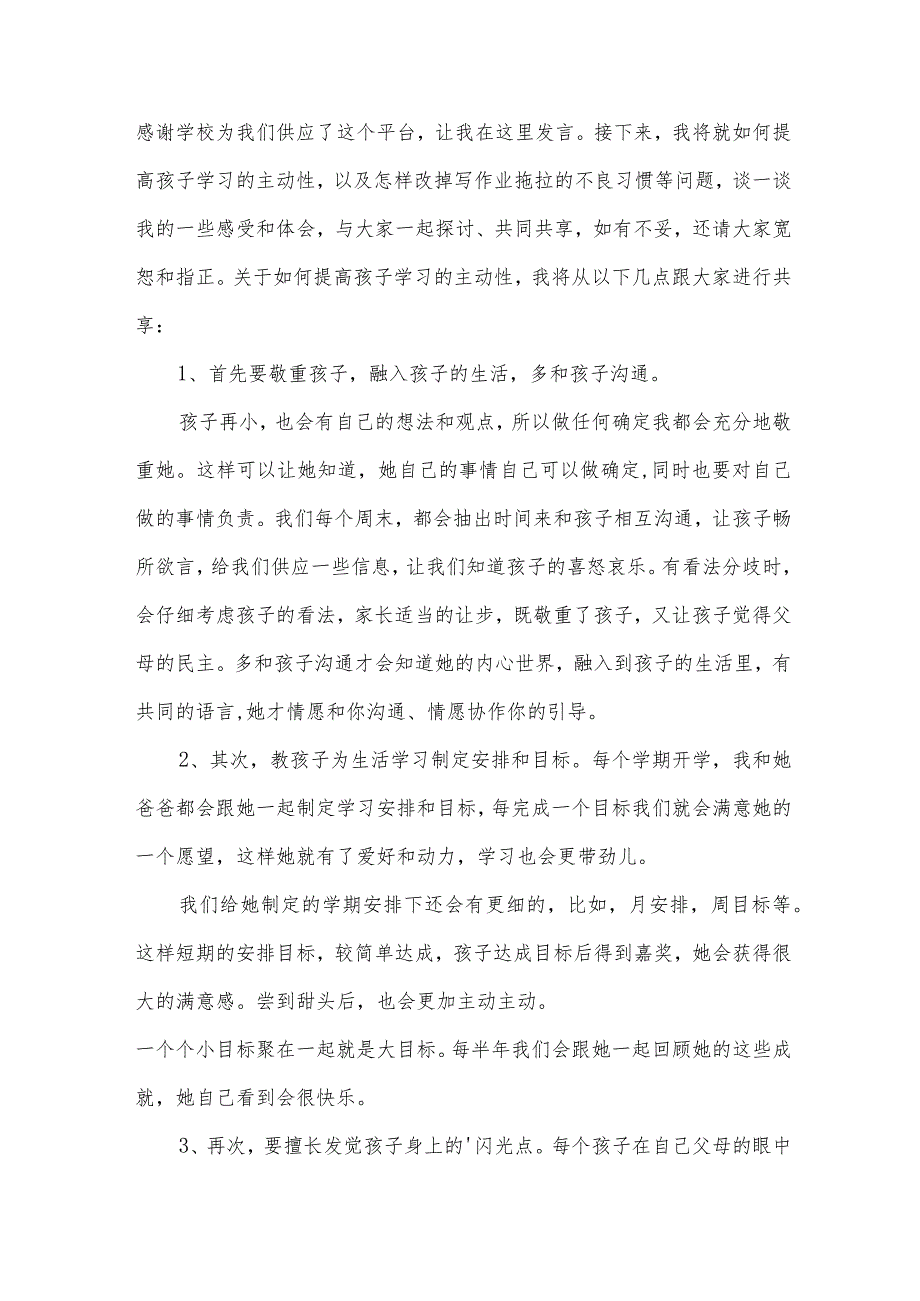 感谢学校为我们供应了这个平台，让我在这里发言。接下来，我将就如何提
高孩子学习的主动性，以及怎样改掉写作业拖拉的不良习惯等问题，谈一谈
我的一些感受和体会，与大家一起探讨、共同共享，如有不妥，还请大家宽
恕和指正。关于如何提高孩子学习的主动性，我将从以下几点跟大家进行共
享：
1、首先要敬重孩子，融入孩子的生活，多和孩子沟通。
孩子再小，也会有自己的想法和观点，所以做任何确定我都会充分地敬
重她。这样可以让她知道，她自己的事情自己可以做确定,同时也要对自己
做的事情负责。我们每个周末，都会抽出时间来和孩子相互沟通，让孩子畅
所欲言，给我们供应一些信息，让我们知道孩子的喜怒哀乐。有看法分歧时，
会仔细考虑孩子的看法，家长适当的让步，既敬重了孩子，又让孩子觉得父
母的民主。多和孩子沟通才会知道她的内心世界，融入到孩子的生活里，有
共同的语言,她才情愿和你沟通、情愿协作你的引导。
2、其次，教孩子为生活学习制定安排和目标。每个学期开学，我和她
爸爸都会跟她一起制定学习安排和目标，每完成一个目标我们就会满意她的
一个愿望，这样她就有了爱好和动力，学习也会更带劲儿。
我们给她制定的学期安排下还会有更细的，比如，月安排，周目标等。
这样短期的安排目标，较简单达成，孩子达成目标后得到嘉奖，她会获得很
大的满意感。尝到甜头后，也会更加主动主动。
一个个小目标聚在一起就是大目标。每半年我们会跟她一起回顾她的这些成
就，她自己看到会很快乐。
3、再次，要擅长发觉孩子身上的'闪光点。每个孩子在自己父母的眼中